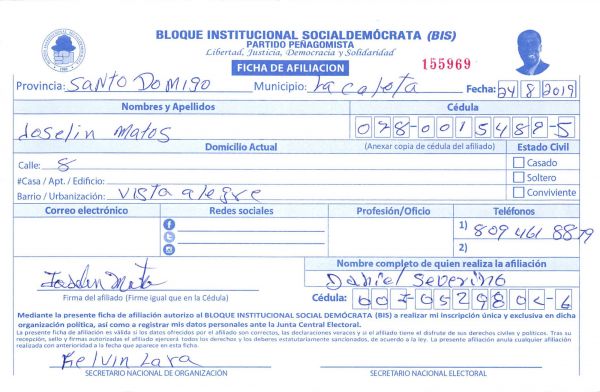 BLOQUE INSTITUCIONAL SOCIALDEMÓCRATA (BIS)
PARTIDO PEÑAGOMISTA
Libertad, Justicia, Democracia y Solidaridad
FICHA DE AFILIACION
155969
Provincia: Santo Domigo Municipio: La caleta Fecha: 24/8/2019
Nombres y Apellidos Cédula
Joselin Matos 028-0015489-5
Domicilio Actual (Anexar copia de cédula del afiliado) Estado Civil
Calle: 8 Casado
#Casa / Apt. / Edificio: Soltero
Barrio / Urbanización: vista alegre Conviviente
Correo electrónico Redes sociales Profesión/Oficio Teléfonos
1) 809 461 8879
2)
Nombre completo de quien realiza la afiliación
Daniel Severino
Firma del afiliado (Firme igual que en la Cédula) Cédula:
Mediante la presente ficha de afiliación autorizo al BLOQUE INSTITUCIONAL SOCIAL DEMÓCRATA (BIS) a realizar mi inscripción única y exclusiva en dicha
organización política, así como a registrar mis datos personales ante la Junta Central Electoral.
La presente ficha de afiliación es válida si los datos ofrecidos por el afiliado son correctos, las declaraciones veraces y si el afiliado tiene el disfrute de sus derechos civiles y políticos. Tras su
recepción, sello y firmas autorizadas el afiliado ejercerá todos los derechos y los deberes estatutariamente sancionados, de acuerdo a la ley. La presente afiliación anula cualquier afiliación
realizada con anterioridad a la fecha que aparece en esta ficha.
Kelvin Lara
SECRETARIO NACIONAL DE ORGANIZACIÓN SECRETARIO NACIONAL ELECTORAL